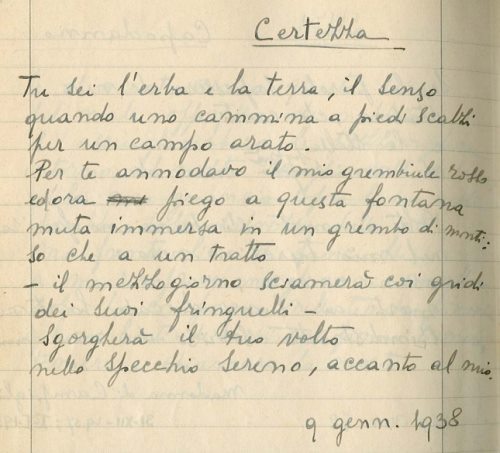 Certezza
Tu sei l'erba e la terra, il senso
quando uno cammina a piedi scalzi
per un campo arato.
Per te annodavo il mio grembiule rosso
ed ora piego a questa fontana
muta immersa in un grembo di monti:
so che a un tratto
- il mezzogiorno sciamerà coi gridi
dei suoi fringuelli -
sgorgherà il tuo volto
nello specchio sereno, accanto al mio.
9 genn. 1938